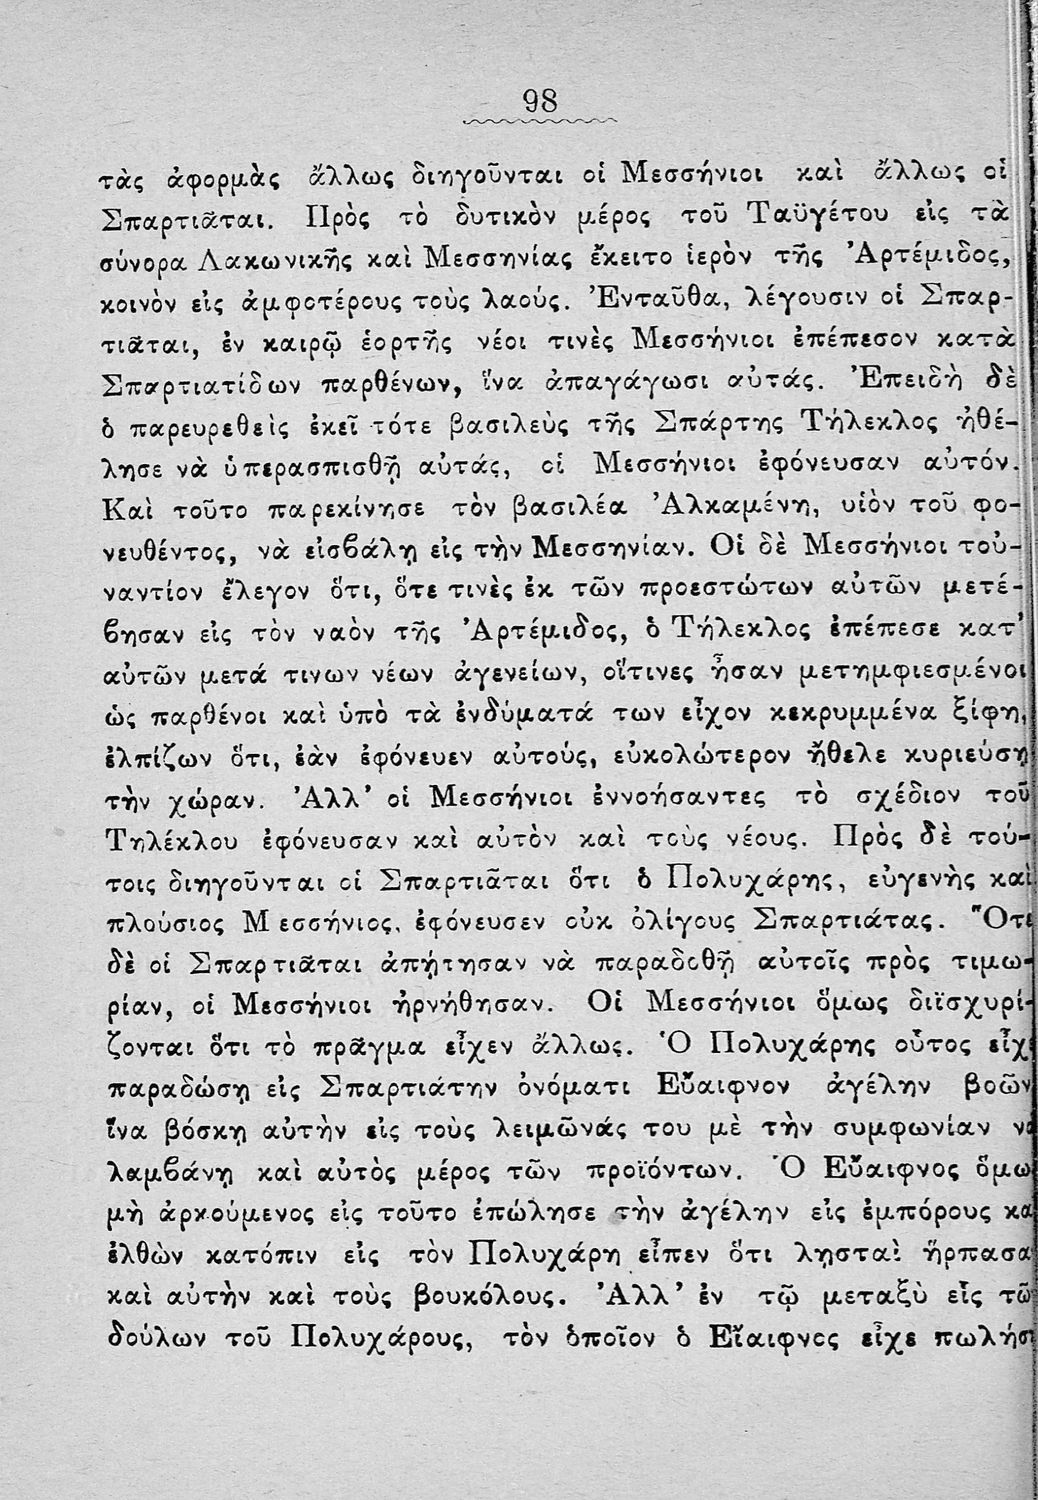 98
τὰς ἀφορμὰς ἄλλως διηγοῦνται οἱ Μεσσήνιοι καὶ ἄλλως οἱ
Σπαρτιᾶται. Πρὸς τὸ δυτικὸν μέρος τοῦ Ταϋγέτου εἰς τὰ
σύνορα Λακωνικῆς καὶ Μεσσηνίας ἔκειτο ἱερὸν τῆς Ἀρτέμιδος,
κοινὸν εἰς ἀμφοτέρους τοὺς λαούς. Ἐνταῦθα, λέγουσιν οἱ Σπαρ-
τιᾶται, ἐν καιρῷ ἑορτῆς νέοι τινὲς Μεσσήνιοι ἐπέπεσον κατὰ
Σπαρτιατίδων παρθένων, ἵνα ἀπαγάγωσι αὐτάς. Ἐπειδὴ δὲ
ὁ παρευρεθεὶς ἐκεῖ τότε βασιλεὺς τῆς Σπάρτης Τήλεκλος ἠθέ-
λησε νὰ ὑπερασπισθῇ αὐτάς, οἱ Μεσσήνιοι ἐφόνευσαν αὐτόν.
Καὶ τοῦτο παρεκίνησε τὸν βασιλέα Ἀλκαμένη, υἱὸν τοῦ φο-
νευθέντος, νὰ εἰσβάλῃ εἰς τὴν Μεσσηνίαν. Οἱ δὲ Μεσσήνιοι τοὐ-
ναντίον ἔλεγον ὅτι, ὅτε τινὲς ἐκ τῶν προεστώτων αὐτῶν μετέ-
βησαν εἰς τὸν ναὸν τῆς Ἀρτέμιδος, ὁ Τήλεκλος ἐπέπεσε κατ'
αὐτῶν μετά τινων νέων ἀγενείων, οἵτινες ἦσαν μετημφιεσμένοι
ὡς παρθένοι καὶ ὑπὸ τὰ ἐνδύματά των εἶχον κεκρυμμένα ξίφη,
ἐλπίζων ὅτι, ἐὰν ἐφόνευεν αὐτούς, εὐκολώτερον ἤθελε κυριεύσῃ
τὴν χώραν. Ἀλλ' οἱ Μεσσήνιοι ἐννοήσαντες τὸ σχέδιον τοῦ
Τηλέκλου ἐφόνευσαν καὶ αὐτὸν καὶ τοὺς νέους. Πρὸς δὲ τού-
τοις διηγοῦνται οἱ Σπαρτιᾶται ὅτι ὁ Πολυχάρης, εὐγενὴς καὶ
πλούσιος Μεσσήνιος, ἐφόνευσεν οὐκ ὀλίγους Σπαρτιάτας. Ὅτε
δὲ οἱ Σπαρτιᾶται ἀπῄτησαν νὰ παραδοθῇ αὐτοῖς πρὸς τιμω-
ρίαν, οἱ Μεσσήνιοι ἠρνήθησαν. Οἱ Μεσσήνιοι ὅμως διϊσχυρί-
ζονται ὅτι τὸ πρᾶγμα εἶχεν ἄλλως. Ὁ Πολυχάρης οὗτος εἶχε
παραδώσῃ εἰς Σπαρτιάτην ὀνόματι Εὔαιφνον ἀγέλην βοῶν
ἵνα βόσκῃ αὐτὴν εἰς τοὺς λειμῶνάς του μὲ τὴν συμφωνίαν νὰ
λαμβάνῃ καὶ αὐτὸς μέρος τῶν προϊόντων. Ὁ Εὔαιφνος ὅμω
μὴ ἀρκούμενος εἰς τοῦτο ἐπώλησε τὴν ἀγέλην εἰς ἐμπόρους κα
ἐλθὼν κατόπιν εἰς τὸν Πολυχάρη εἶπεν ὅτι λῃσταὶ ἥρπασα
καὶ αὐτὴν καὶ τοὺς βουκόλους. Ἀλλ' ἐν τῷ μεταξὺ εἷς τῶ
δούλων τοῦ Πολυχάρους, τὸν ὁποῖον ὁ Εὔαιφνος εἶχε πωλήσ